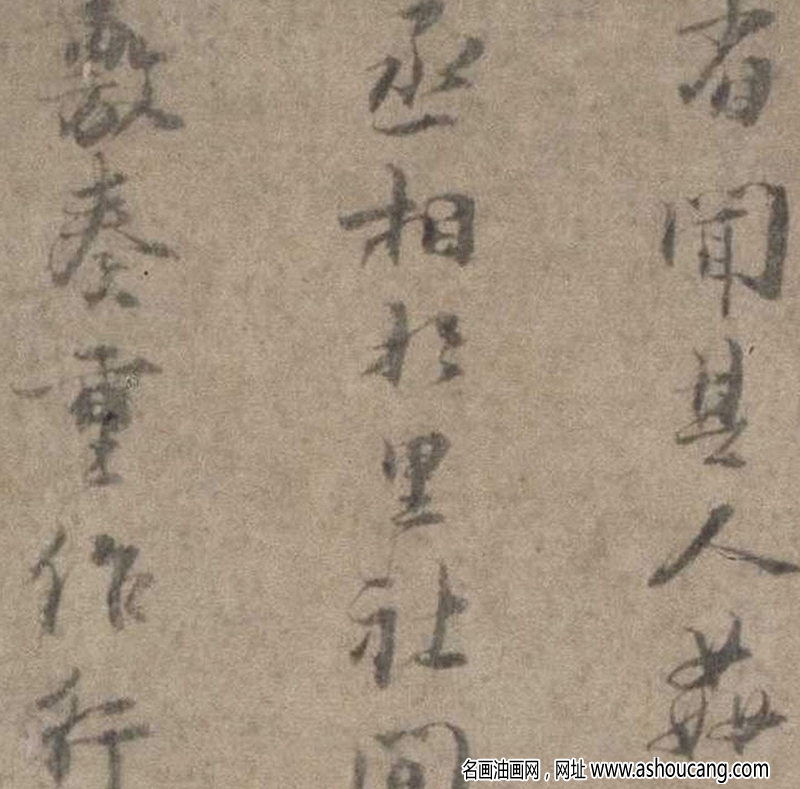 省聞其人兹
丞相於里社间
數奏重作行
名画油画网，网址 www.ashoucang.com